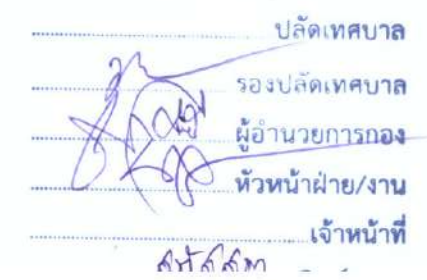 ปลัดเทศบาล
รองปลัดเทศบาล
ผู้อำนวยการกอง
หัวหน้าฝ่าย/งาน
เจ้าหน้าที่